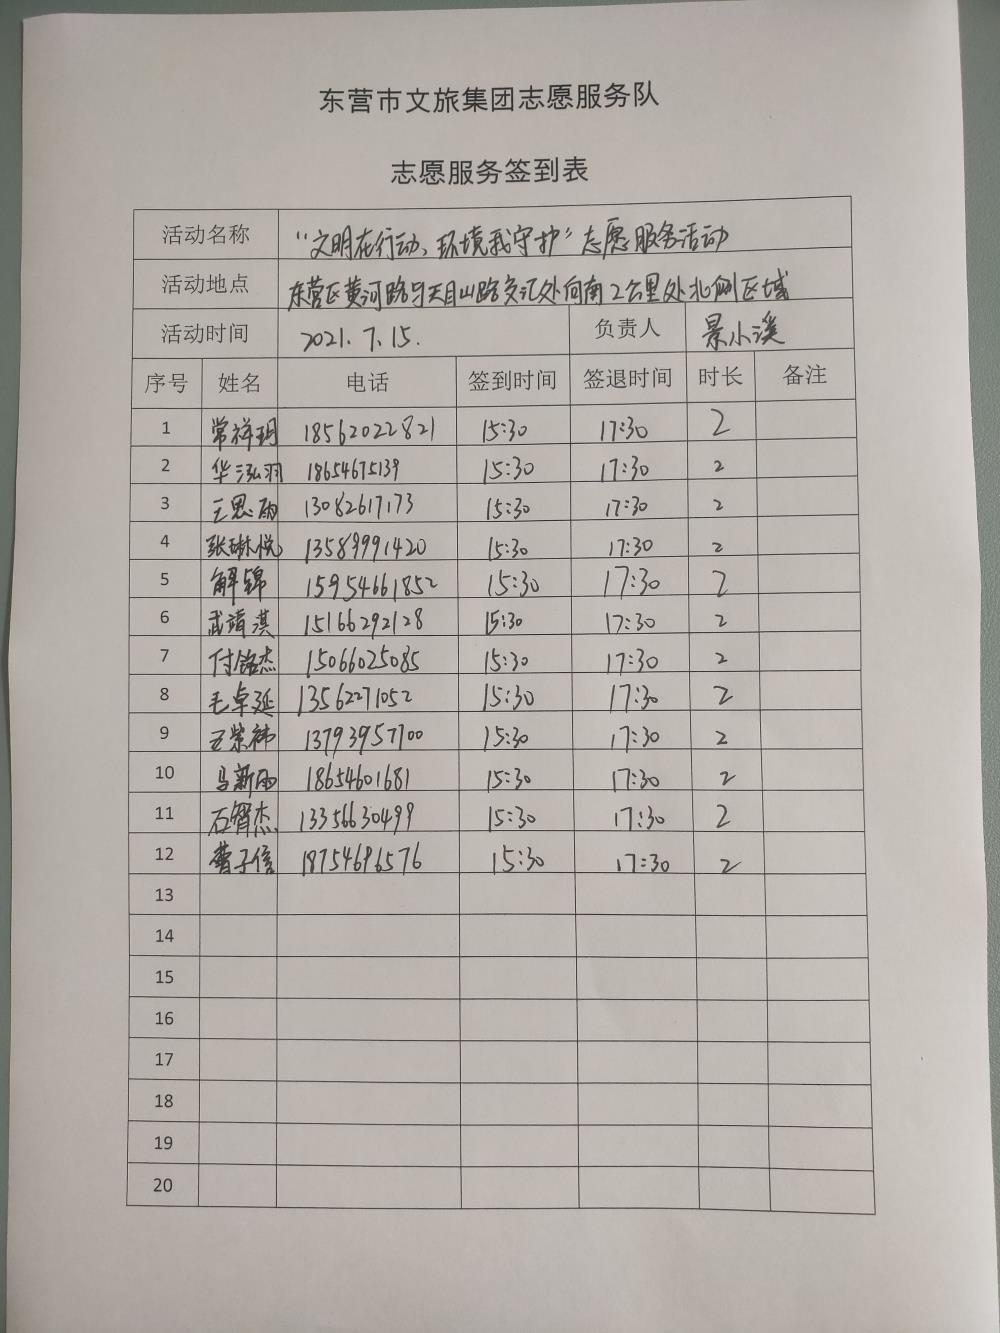 东营市文旅集团志愿服务队
志愿服务签到表
活动名称 “文明在行动、环境我守护”志愿服务活动
活动地点 东营区黄河路与天目山路交汇处向南2公里处北侧区域
活动时间 2021.7.15. 负责人 景小溪
序号 姓名 电话 签到时间 签退时间 时长 备注
1 常祥玥 18562022821 15:30 17:30 2
2 华泓羽 18654675139 15:30 17:30 2
3 王思雨 13082617173 15:30 17:30 2
4 张琳悦 13589991420 15:30 17:30 2
5 解锦 15954661852 15:30 17:30 2
6 武靖淇 15166292128 15:30 17:30 2
7 付铭杰 15066025085 15:30 17:30 2
8 毛卓延 13562271052 15:30 17:30 2
9 王紫祎 13793957700 15:30 17:30 2
10 马新雨 18654601681 15:30 17:30 2
11 石智杰 13356630499 15:30 17:30 2
12 曹子信 18754696576 15:30 17:30 2
13
14
15
16
17
18
19
20